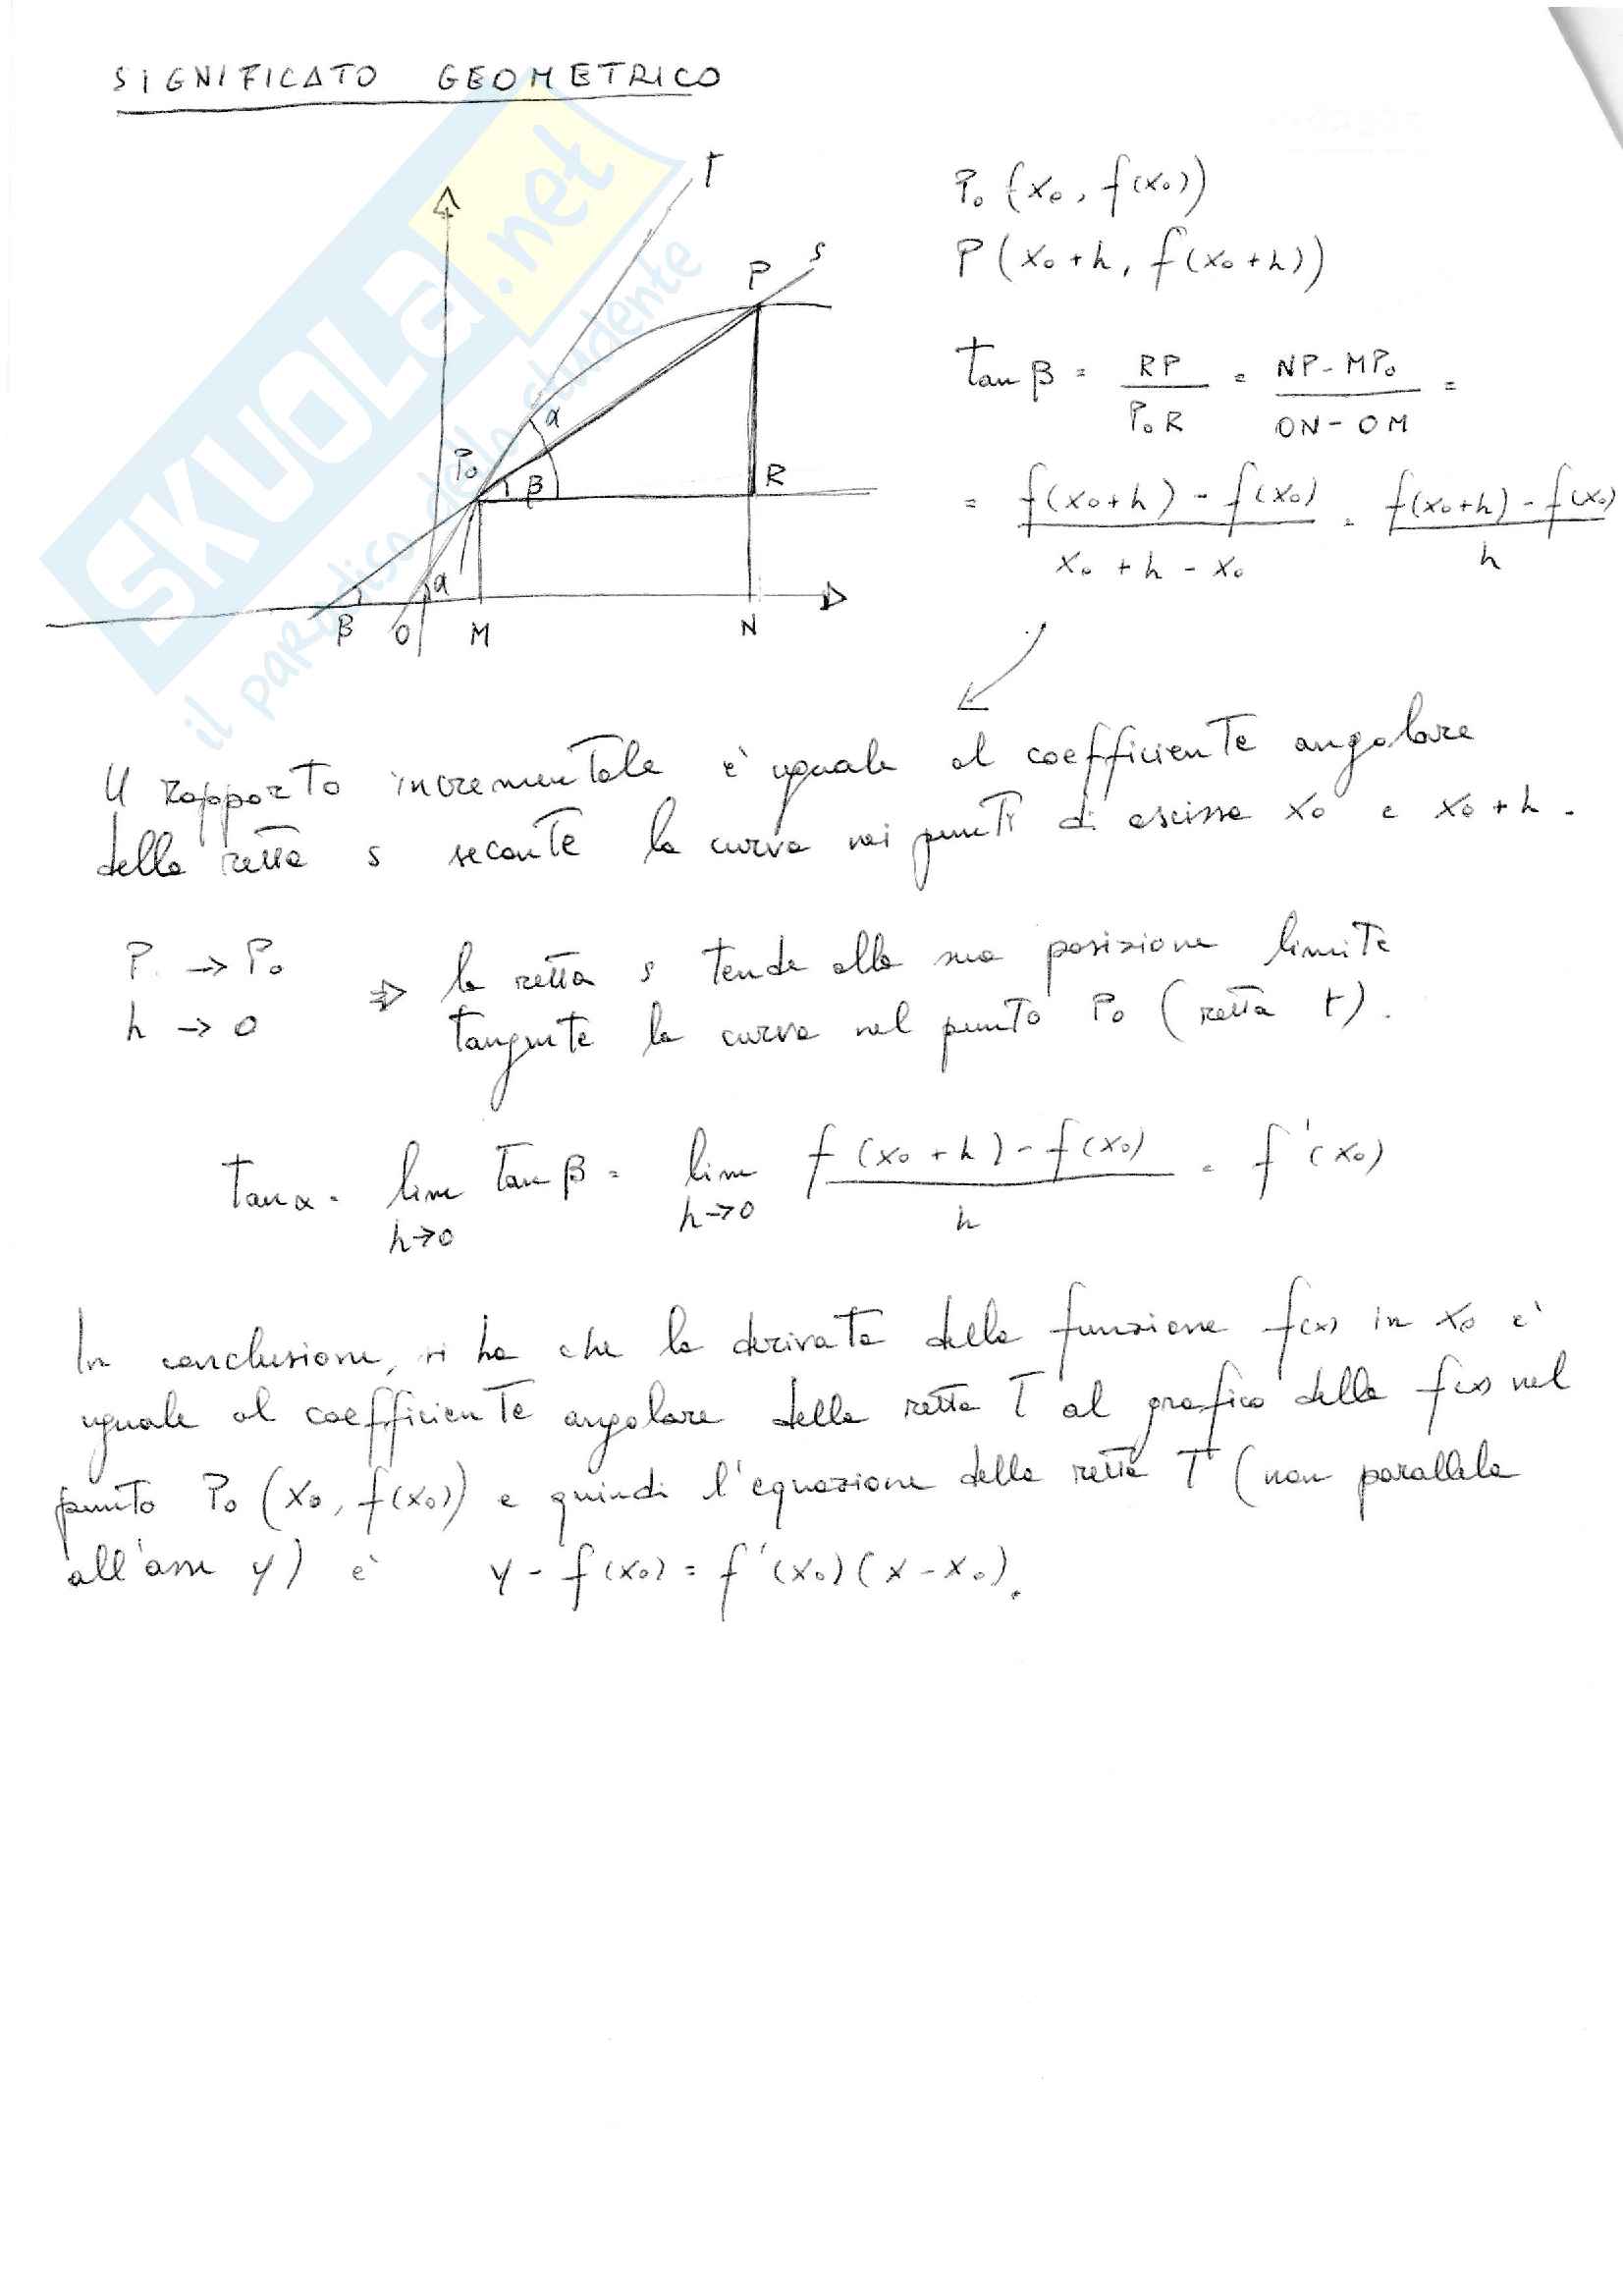 SIGNIFICATO GEOMETRICO
T
S
P
α
P₀
β
R
α
β
O
M
N
P₀ (x₀, f(x₀))
P (x₀+h, f(x₀+h))
tan β = RP / P₀R = NP-MP₀ / ON-OM =
= f(x₀+h) - f(x₀) / x₀+h-x₀ = f(x₀+h) - f(x₀) / h
Il rapporto incrementale è uguale al coefficiente angolare
della retta s secante la curva nei punti di ascissa x₀ e x₀+h.
P → P₀
h → 0
⇒ la retta s tende alla sua posizione limite
tangente la curva nel punto P₀ (retta t).
tan α = lim h→0 tan β = lim h→0 f(x₀+h) - f(x₀) / h = f'(x₀)
In conclusione, si ha che la derivata della funzione f(x) in x₀ è
uguale al coefficiente angolare della retta T al grafico della f(x) nel
punto P₀ (x₀, f(x₀)) e quindi l'equazione della retta T (non parallela
all'asse y) è y - f(x₀) = f'(x₀)(x-x₀).
SKUOLA.net
il paradiso dello studente